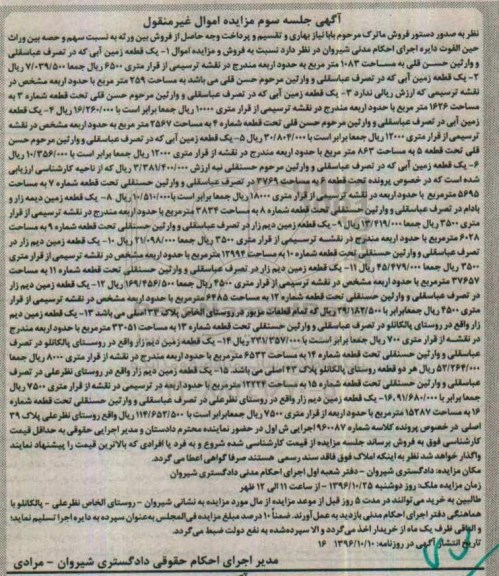 آگهی جلسه سوم مزایده اموال غیرمنقول
نظر به صدور دستور فروش ماترک مرحوم بابا نیاز بهاری و تقسیم و پرداخت وجه حاصل از فروش بین ورثه به نسبت سهم و حصه بین وراث
حین الفوت دایره اجرای احکام مدنی شیروان در نظر دارد نسبت به فروش و مزایده اموال ۱- یک قطعه زمین آبی که در تصرف عباسقلی
و وارثین حسن قلی به مساحت ۱۰۸۳ متر مربع به حدود اربعه مندرج در نقشه ترسیمی از قرار متری ۶۵۰۰ ریال جمعا ۷/۰۳۹/۵۰۰ ریال
۲- یک قطعه زمین آبی که در تصرف عباسقلی و وارثین مرحوم حسن قلی می باشد به مساحت ۲۵۹ متر مربع با حدود اربعه مشخص در
نقشه ترسیمی که ارزش ریالی ندارد ۳- یک قطعه زمین آبی که در تصرف عباسقلی و وارثین مرحوم حسن قلی تحت قطعه شماره ۳ به
مساحت ۱۶۲۶ متر مربع با حدود اربعه مندرج در نقشه ترسیمی از قرار متری ۱۰۰۰۰ ریال جمعا برابر است با ۱۶/۲۶۰/۰۰۰ ریال ۴- یک قطعه
زمین آبی در تصرف عباسقلی و وارثین مرحوم حسن قلی تحت قطعه شماره ۴ به مساحت ۲۵۶۷ متر مربع به حدود اربعه مشخص در نقشه
ترسیمی از قرار متری ۱۲۰۰۰ ریال جمعا برابر است با ۳۰/۸۰۴/۰۰۰ ریال ۵- یک قطعه زمین آبی که در تصرف عباسقلی و وارثین مرحوم حسن
قلی تحت قطعه ۵ به مساحت ۸۶۳ متر مربع با حدود اربعه مندرج در نقشه از قرار متری ۱۲۰۰۰ ریال جمعا برابر است با ۱۰/۳۵۶/۰۰۰ ریال
۶- یک قطعه زمین آبی که در تصرف عباسقلی و وارثین مرحوم حسنقلی نیه ارزش ۳/۳۸۱/۴۰۰/۰۰۰ ریال که از ناحیه کارشناسی ارزیابی
شده است که در خصوص پرونده تحت قطعه ۶ به مساحت ۳۷۶۹ در تصرف عباسقلی و وارثین حسنقلی تحت قطعه شماره ۷ به مساحت
۵۶۹۵ مترمربع با حدود اربعه در نقشه ترسیمی از قرار متری ۱۸۰۰۰ ریال جمعا برابر است با ۱۰/۵۱۰/۰۰۰ ریال ۸- یک قطعه زمین دیمه زار و
بادام در تصرف عباسقلی و وارثین حسنقلی تحت قطعه شماره ۸ به مساحت ۳۸۳۴ مترمربع با حدود اربعه مندرج در نقشه ترسیمی از قرار
متری ۳۵۰۰ ریال جمعا ۱۳/۴۱۹/۰۰۰ ریال ۹- یک قطعه زمین دیم زار در تصرف عباسقلی و وارثین حسنقلی تحت قطعه شماره ۹ به مساحت
۶۰۲۸ مترمربع با حدود اربعه مندرج در نقشه ترسیمی از قرار متری ۳۵۰۰ ریال جمعا ۲۱/۰۹۸/۰۰۰ ریال ۱۰- یک قطعه زمین دیم زار در
تصرف عباسقلی و وارثین حسنقلی تحت قطعه شماره ۱۰ به مساحت ۱۲۹۹۴ مترمربع با حدود اربعه مشخص در نقشه ترسیمی از قرار متری
۳۵۰۰ ریال جمعا ۴۵/۴۷۹/۰۰۰ ریال ۱۱- یک قطعه زمین دیم زار در تصرف عباسقلی و وارثین حسنقلی تحت قطعه شماره ۱۱ به مساحت
۳۷۶۵۷ مترمربع با حدود اربعه مشخص در نقشه ترسیمی از قرار متری ۴۵۰۰ ریال جمعا ۱۶۹/۴۵۶/۵۰۰ ریال ۱۲- یک قطعه زمین دیم زار
در تصرف عباسقلی و وارثین حسنقلی تحت قطعه شماره ۱۲ به مساحت ۶۴۸۵ مترمربع با حدود اربعه مشخص در نقشه ترسیمی از قرار
متری ۴۵۰۰ ریال جمعابرابر با ۲۹/۱۸۲/۵۰۰ ریال که تمام قطعات مزبور در روستای الخاص پلاک ۳۳ اصلی می باشد ۱۳- یک قطعه زمین دیم
زار واقع در روستای پالکانلو در تصرف عباسقلی و وارثین حسنقلی تحت قطعه شماره ۱۳ به مساحت ۳۳۰۵۱ مترمربع با حدود اربعه مندرج
در نقشه از قرار متری ۷۰۰ ریال جمعا برابر است با ۲۳۱/۳۵۷/۰۰۰ ریال ۱۴- یک قطعه زمین دیم زار واقع در روستای پالکانلو در تصرف
عباسقلی و وارثین حسنقلی تحت قطعه شماره ۱۴ به مساحت ۶۵۳۲ مترمربع با حدود اربعه مندرج در نقشه از قرار متری ۸۰۰۰ ریال جمعا
۵۲/۲۶۴/۰۰۰ ریال هر دو قطعه روستای پالکانلو پلاک ۴۳ اصلی می باشد. ۱۵- یک قطعه زمین دیم زار واقع در روستای نظرعلی در تصرف
عباسقلی و وارثین حسنقلی تحت قطعه شماره ۱۵ به مساحت ۱۲۲۲۴ مترمربع با حدود اربعه در ترسیمی در نقشه از قرار متری ۷۵۰۰ ریال
جمعا برابر است با ۹۱/۶۸۰/۰۰۰ ریال ۱۶- یک قطعه زمین دیم زار واقع در روستای نظرعلی در تصرف عباسقلی و وارثین حسنقلی تحت شماره
۱۶ به مساحت ۱۵۲۸۷ مترمربع با حدود اربعه از قرار متری ۷۵۰۰ ریال جمعابرابر است با ۱۱۴/۶۵۲/۵۰۰ ریال واقع روستای نظرعلی پلاک ۳۹
اصلی در خصوص پرونده کلاسه شماره ۹۶۰۰۸۷ اجرایی ش اول در حضور نماینده محترم دادستان و مدیر اجرایی حقوقی به حداقل قیمت
کارشناسی فوق به فروش برساند جلسه مزایده از قیمت کارشناسی شده شروع و به فرد یا افرادی که بالاترین قیمت را پیشنهاد نمایند
واگذار خواهد شد نظر به اینکه املاک فوق فاقد سند رسمی هستند صرفا گواهی اعطا می گردد.
مکان مزایده: دادگستری شیروان – دفتر شعبه اول اجرای احکام مدنی دادگستری شیروان
زمان مزایده ملک: روز دوشنبه ۱۳۹۶/۱۰/۲۵ – از ساعت ۱۱ الی ۱۲ ظهر
طالبین به خرید می توانند در مدت ۵ روز قبل از موعد مزایده از مال مورد مزایده به نشانی شیروان – روستای الخاص نظرعلی – پالکانلو با
هماهنگی دفتر اجرای احکام مدنی بازدید به عمل آورند. ضمناً ۱۰ درصد مبلغ مزایده فی المجلس به عنوان سپرده به دایره اجرا تسلیم نماید؛
و الباقی ظرف یک ماه از خریدار اخذ می گردد و الا سپرده شده به نفع دولت ضبط می گردد.
تاریخ انتشار آگهی در روزنامه: ۱۳۹۶/۱۰/۱۰ ۱۶
مدیر اجرای احکام حقوقی دادگستری شیروان – مرادی